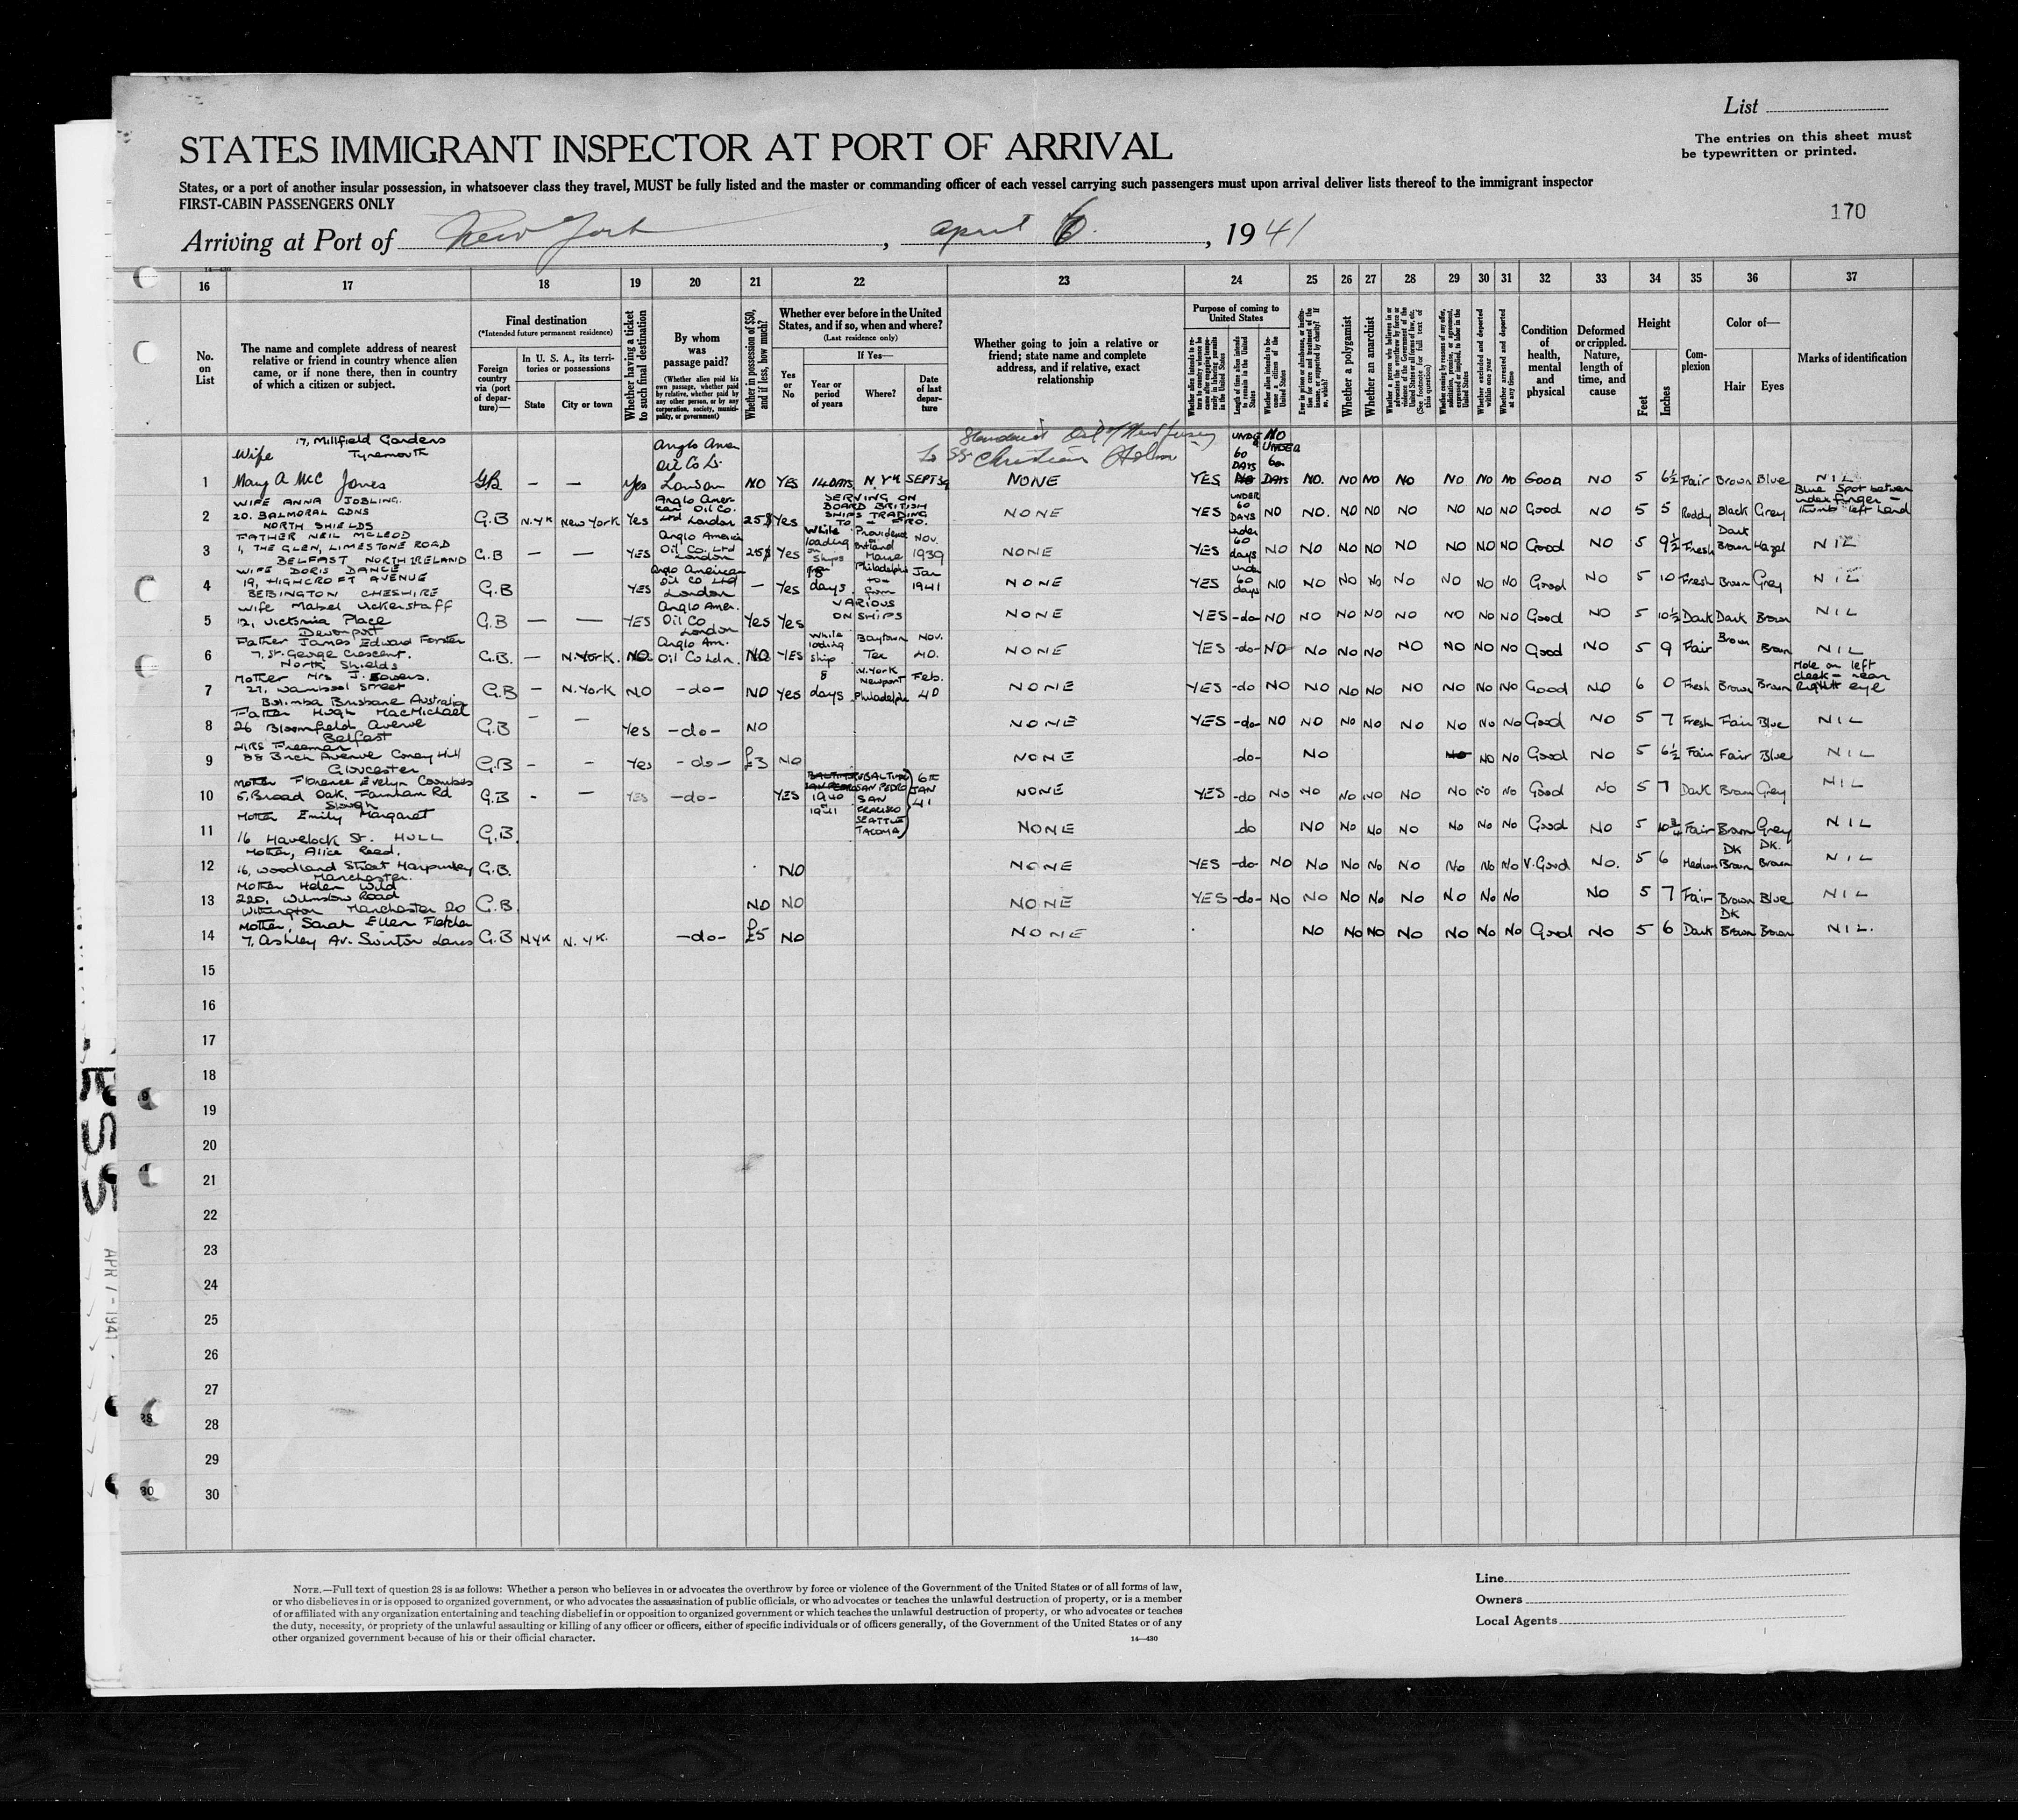 List
The entries on this sheet must
be typewritten or printed.
STATES IMMIGRANT INSPECTOR AT PORT OF ARRIVAL
States, or a port of another insular possession, in whatsoever class they travel, MUST be fully listed and the master or commanding officer of each vessel carrying such passengers must upon arrival deliver lists thereof to the immigrant inspector
FIRST-CABIN PASSENGERS ONLY
170
Arriving at Port of New York, April 6. , 1941
14—430
16 17 18 19 20 21 22 23 24 25 26 27 28 29 30 31 32 33 34 35 36 37
No. on List
The name and complete address of nearest relative or friend in country whence alien came, or if none there, then in country of which a citizen or subject.
Final destination
(*Intended future permanent residence)
Foreign country via (port of departure)—
In U. S. A., its territories or possessions
State
City or town
Whether having a ticket to such final destination
By whom was passage paid?
(Whether alien paid his own passage, whether paid by relative, whether paid by any other person, or by any corporation, society, municipality, or government)
Whether in possession of $50, and if less, how much?
Whether ever before in the United States, and if so, when and where?
(Last residence only)
Yes or No
If Yes—
Year or period of years
Where?
Date of last departure
Whether going to join a relative or friend; state name and complete address, and if relative, exact relationship
Purpose of coming to United States
Length of time alien intends to remain in the United States
Whether alien intends to become a citizen of the United States
Whether a polygamist
Whether an anarchist
Whether excluded and deported within one year
Whether arrested and deported at any time
Condition of health, mental and physical
Deformed or crippled. Nature, length of time, and cause
Height
Feet
Inches
Complexion
Color of—
Hair
Eyes
Marks of identification
Standard Oil of New Jersey
To SS Christian Holm
1 Wife 17, Millfield Gardens Tynemouth Mary A McC Jones GB — — Yes Anglo Amer Oil Co Ld. London NO YES 14 DAYS N. Yk SEPT 39 NONE YES UNDER 60 DAYS NO NO UNDER 60 DAYS NO. NO NO NO NO NO NO Good NO 5 6½ Fair Brown Blue NIL
2 WIFE ANNA JOBLING. 20. BALMORAL GDNS NORTH SHIELDS G.B N.YK New York Yes Anglo American Oil Co. Ltd London 25$ Yes SERVING ON BOARD BRITISH SHIPS TRADING TO & FRO. NONE YES UNDER 60 DAYS NO NO. NO NO NO NO NO NO Good NO 5 5 Ruddy Black Grey Blue Spot between index finger — thumb left hand
3 FATHER NEIL MCLEOD 1, THE GLEN, LIMESTONE ROAD BELFAST NORTH IRELAND G.B — — YES Anglo American Oil Co. Ltd London 25$ Yes While loading on ships Providence Portland Maine Nov. 1939 NONE YES under 60 days NO NO NO NO NO NO NO NO Good NO 5 9½ Fresh Dark Brown Hazel NIL
4 WIFE DORIS DANCE 19, HIGHCROFT AVENUE BEBINGTON CHESHIRE G.B YES Anglo American Oil Co Ltd London — Yes days Philadelphia to & from Jan 1941 NONE YES under 60 days NO NO NO NO NO NO NO NO Good NO 5 10 Fresh Brown Grey NIL
5 Wife Mabel Vickerstaff 12, Victoria Place Devonport G.B — — YES Anglo Amer. Oil Co London Yes Yes VARIOUS ON SHIPS NONE YES -do- NO NO NO NO NO NO NO NO Good NO 5 10½ Dark Dark Brown NIL
6 Father James Edward Forster 7, St. George Crescent. North Shields G.B. — N.York. NO. Anglo Am. Oil Co Ldn. NO YES While loading ship Baytown Tex Nov. 40. NONE YES -do- NO NO NO NO NO NO NO NO Good NO 5 9 Fair Brown Brown NIL
7 Mother Mrs J. Bowers. 27, Wambool Street Bulimba Brisbane Australia G.B — N.York NO -do- NO Yes 8 days N.York Newport Philadelphia Feb. 40 NONE YES -do NO NO NO NO NO NO NO NO Good NO 6 0 Fresh Brown Brown Mole on left cheek — near Right eye
8 Father Hugh MacMichael 26 Bloomfield Avenue Belfast G.B — — Yes -do- NO NONE YES -do- NO NO NO NO NO NO NO NO Good NO 5 7 Fresh Fair Blue NIL
9 MRS Freeman 88 Birch Avenue Coney Hill Gloucester G.B — — Yes -do- £3 NO NONE -do- NO NO NO NO Good NO 5 6½ Fair Fair Blue NIL
10 Mother Florence Evelyn Coombes 5, Broad Oak, Farnham Rd Slough G.B - - YES -do- YES 1940 1941 BALTIMORE SAN PEDRO SAN FRANCISCO SEATTLE TACOMA 6th JAN 41 NONE YES -do NO NO NO NO NO NO NO NO Good NO 5 7 Dark Brown Grey NIL
11 Mother Emily Margaret 16 Havelock St. HULL G.B. NONE do NO NO NO NO NO NO NO Good NO 5 10¾ Fair Brown Grey NIL
12 Mother, Alice Reed. 16, Woodland Street Harpurhey Manchester. G.B. NO NONE YES -do- NO NO NO NO NO NO NO NO V.Good NO. 5 6 Medium DK Brown DK. Brown NIL
13 Mother Helen Wild 220, Wilmslow Road Withington Manchester 20 G.B. NO NO NONE YES -do- NO NO NO NO NO NO NO NO NO 5 7 Fair Brown Blue NIL
14 Mother, Sarah Ellen Fletcher 7, Ashley Av. Swinton Lancs G.B NYK N. YK. -do- £5 NO NONE NO NO NO NO NO NO NO Good NO 5 6 Dark DK Brown Brown NIL.
15
16
17
18
19
20
21
22
23
24
25
26
27
28
29
30
APR 7 - 1941
NOTE.—Full text of question 28 is as follows: Whether a person who believes in or advocates the overthrow by force or violence of the Government of the United States or of all forms of law,
or who disbelieves in or is opposed to organized government, or who advocates the assassination of public officials, or who advocates or teaches the unlawful destruction of property, or is a member
of or affiliated with any organization entertaining and teaching disbelief in or opposition to organized government or which teaches the unlawful destruction of property, or who advocates or teaches
the duty, necessity, or propriety of the unlawful assaulting or killing of any officer or officers, either of specific individuals or of officers generally, of the Government of the United States or of any
other organized government because of his or their official character.
14—430
Line
Owners
Local Agents